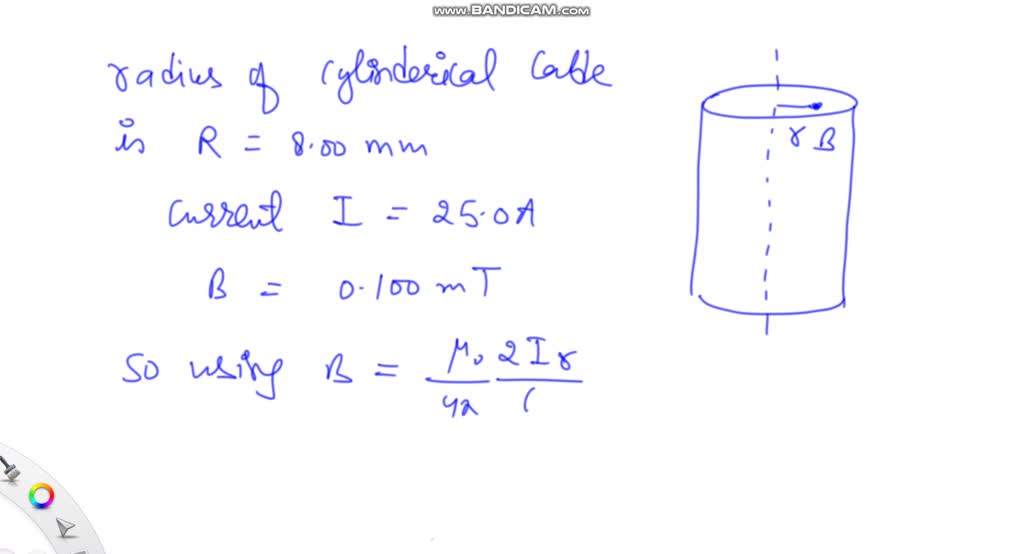 www.BANDICAM.com
radius of cylinderical Cable
is R = 8.00 mm
Current I = 25.0A
B = 0.100 mT
So using B = μ₀/4π 2Ir/(
r B